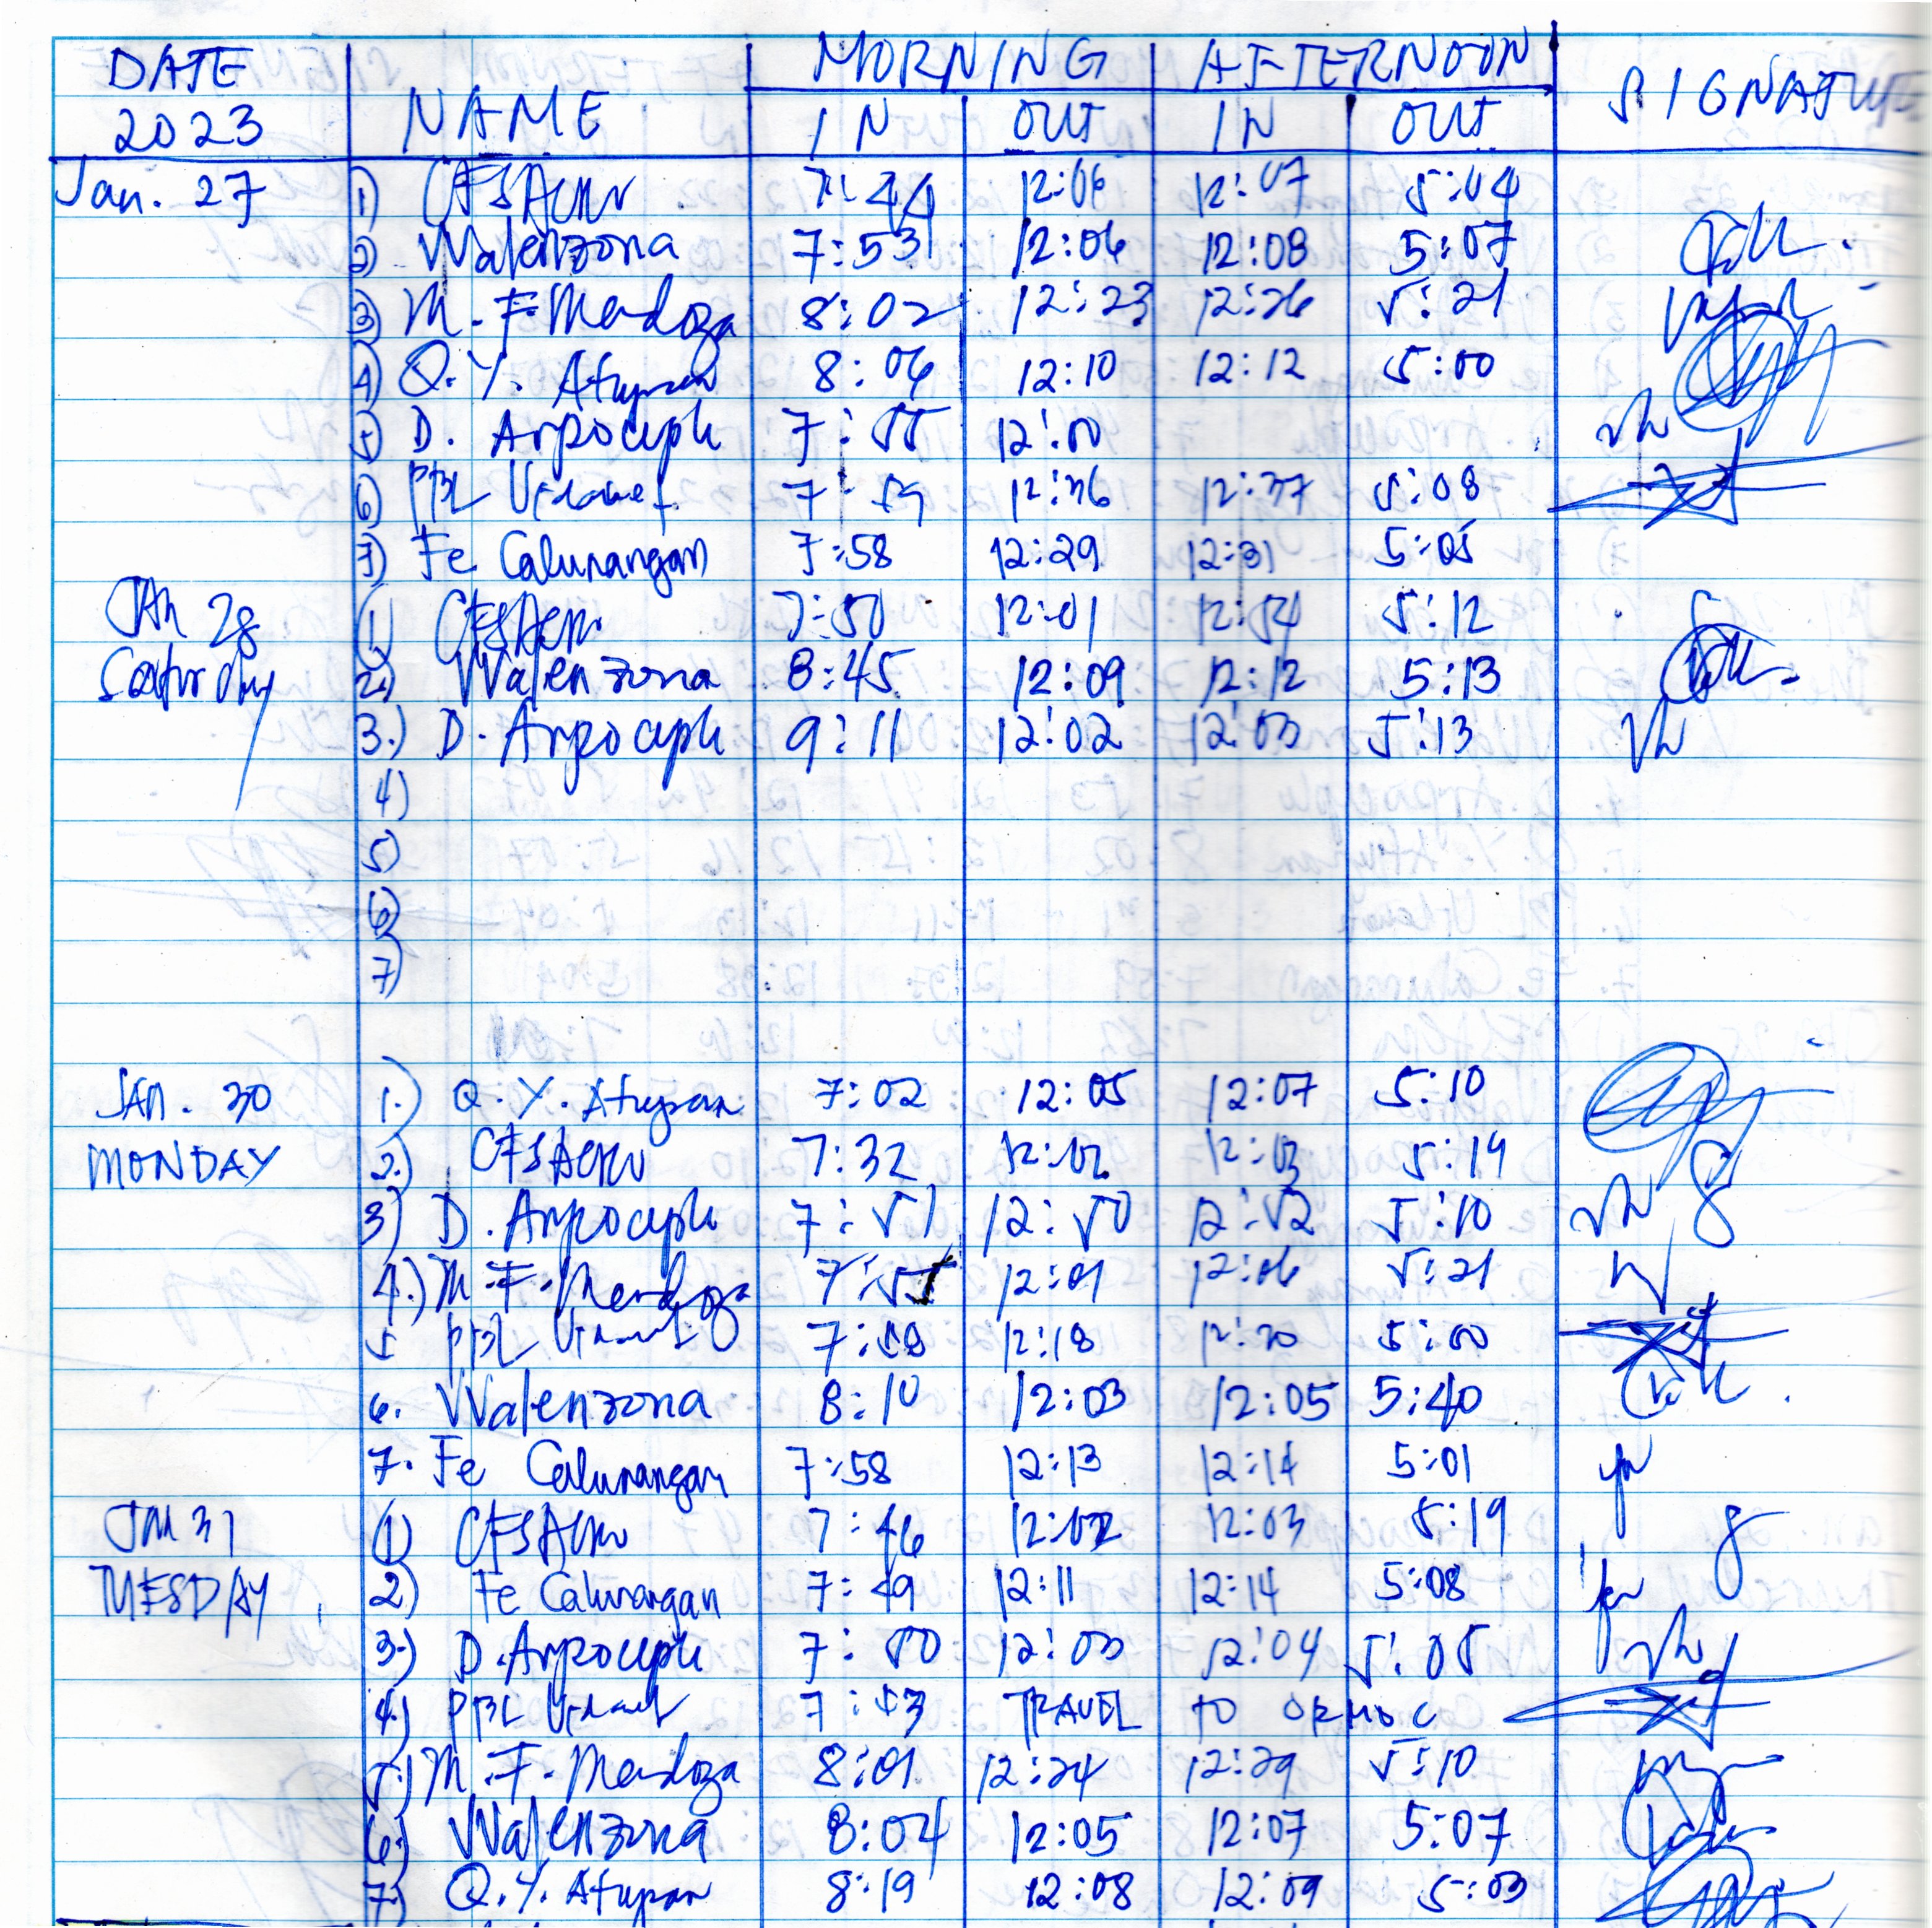 DATE 2023 NAME MORNING AFTERNOON SIGNATURE
IN OUT IN OUT
Jan. 27 1) 7:44 12:06 12:07 5:04
2) VValenzona 7:53 12:06 12:08 5:07
3) M. F. Mendoza 8:02 12:23 12:26 5:21
4) Q. Y. Atupan 8:06 12:10 12:12 5:00
5) D. Arpoceple 7:55 12:00
6) PBL 7:59 12:36 12:37 5:08
7) Fe Calunangan 7:58 12:29 12:31 5:05
JAN 28 1) 7:50 12:01 12:54 5:12
Saturday 2) VValenzona 8:45 12:09 12:12 5:13
3.) D. Arpoceple 9:11 12:02 12:03 5:13
4)
5)
6)
7)
JAN. 30 1.) Q. Y. Atupan 7:02 12:05 12:07 5:10
MONDAY 2.) 7:32 12:02 12:03 5:19
3) D. Arpoceple 7:51 12:50 12:52 5:10
4.) M. F. Mendoza 7:55 12:01 12:06 5:21
5 PBL 12:18 12:20 5:00
6. VValenzona 8:10 12:03 12:05 5:40
7. Fe Calunangan 7:58 12:13 12:14 5:01
JAN 31 1) 7:46 12:02 12:03 5:19
TUESDAY 2) Fe Calunangan 7:49 12:11 12:14 5:08
3.) D. Arpoceple 7:50 12:03 12:04 5:05
4.) PBL 7:53 TRAVEL TO ORMOC
5.) M. F. Mendoza 8:01 12:24 12:29 5:10
6.) VValenzona 8:04 12:05 12:07 5:07
7.) Q. Y. Atupan 8:19 12:08 12:09 5:03